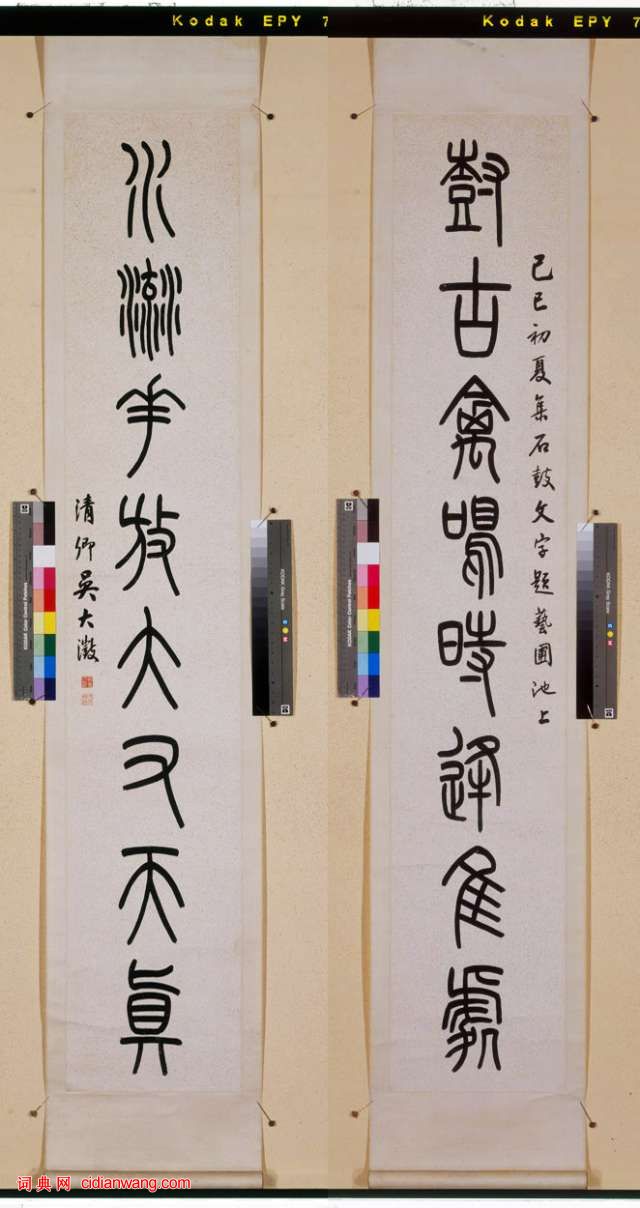 Kodak EPY 7
Kodak EPY 7
尌古禽鳴時逢隹處
己巳初夏集石鼓文字題藝圃池上
水放大又天真
清卿吳大澂
词典网 cidianwang.com